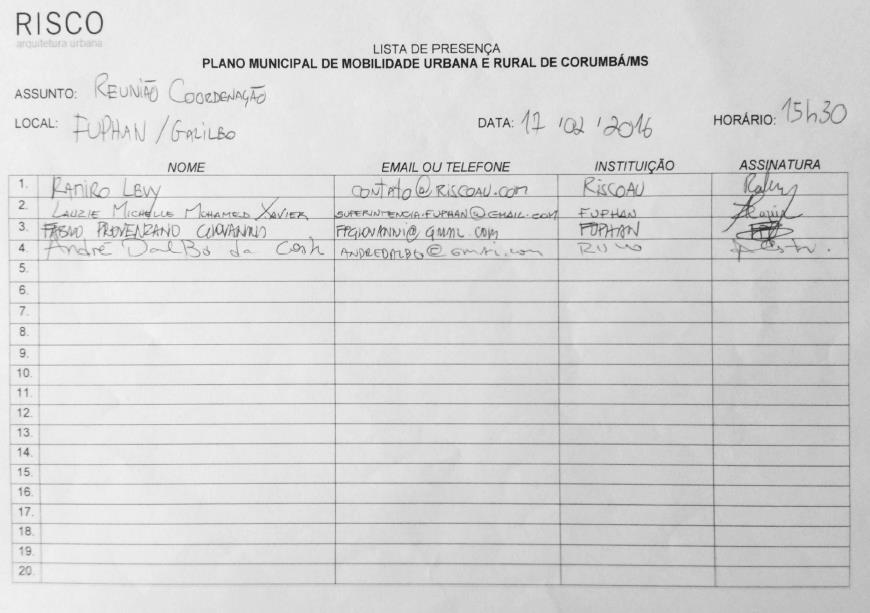 RISCO
arquitetura urbana
LISTA DE PRESENÇA
PLANO MUNICIPAL DE MOBILIDADE URBANA E RURAL DE CORUMBÁ/MS
ASSUNTO: REUNIÃO COORDENAÇÃO
LOCAL: FUPHAN / GALILEO DATA: 17 / 02 / 2016 HORÁRIO: 15h30
NOME EMAIL OU TELEFONE INSTITUIÇÃO ASSINATURA
1. RAMIRO LEVY CONTATO@RISCOAU.COM RISCOAU
2. LAUZIE MICHELLE MOHAMED XAVIER SUPERINTENCIA.FUPHAN@GMAIL.COM FUPHAN
3. FABIO PROVENZANO GIOVANNI FPGIOVANNI@GMAIL.COM FUPHAN
4. André Dal Bó da Costa ANDREDALBO@GMAIL.COM RISCO
5.
6.
7.
8.
9.
10.
11.
12.
13.
14.
15.
16.
17.
18.
19.
20.